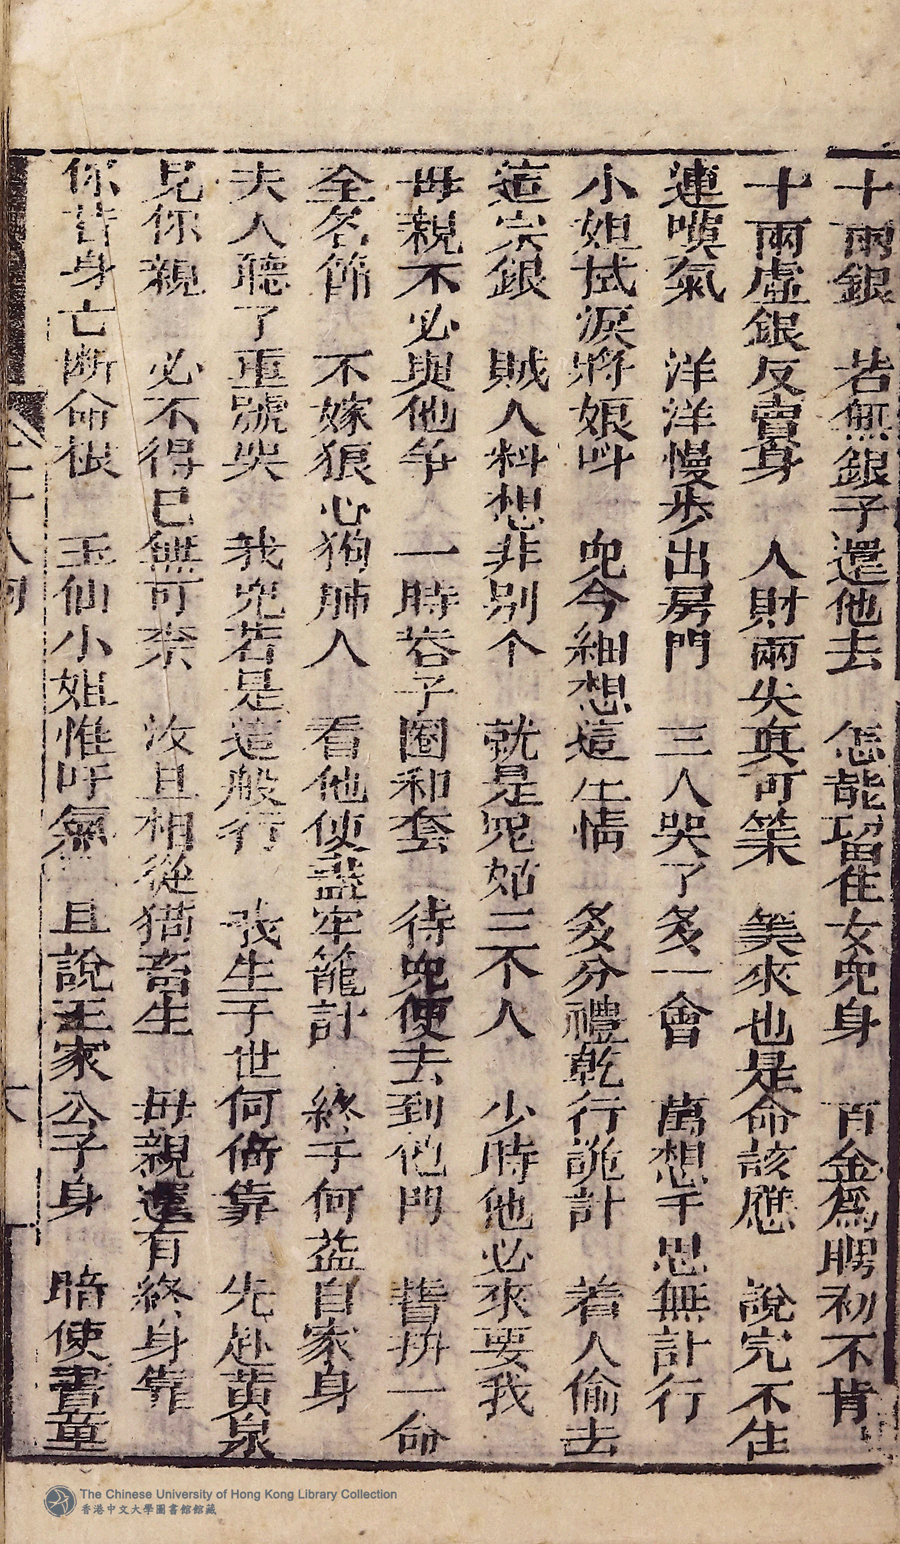 十兩銀　若無銀子還他去　怎能留住女児身　百金爲聘初不肯
十兩虛銀反賣身　人財兩失真可笑　筭來也是命該應　說完不住
連嘆氣　洋洋慢步出房門　三人哭了多一會　萬想千思無計行
小姐拭淚將娘叫　児今細想這生情　多分禮乾行詭計　着人偷去
這宗銀　賊人料想非别个　就是児姑三不人　少時他必來要我
母親不必與他争　一時卷子圈和套　待児便去到他門　㧱一命
全名節　不嫁狼心狗肺人　看他使盡牢籠計　終于何益自家身
夫人聽了重號哭　我児若是這般行　我生于世何倚靠　先赴黄泉
見你親　必不得已無可奈　汝且相從猫畜生　母親還有終身靠
你若身亡断命根　玉仙小姐惟吁氣　且說王家公子身　暗使書童
二十八
The Chinese University of Hong Kong Library Collection
香港中文大學圖書館館藏